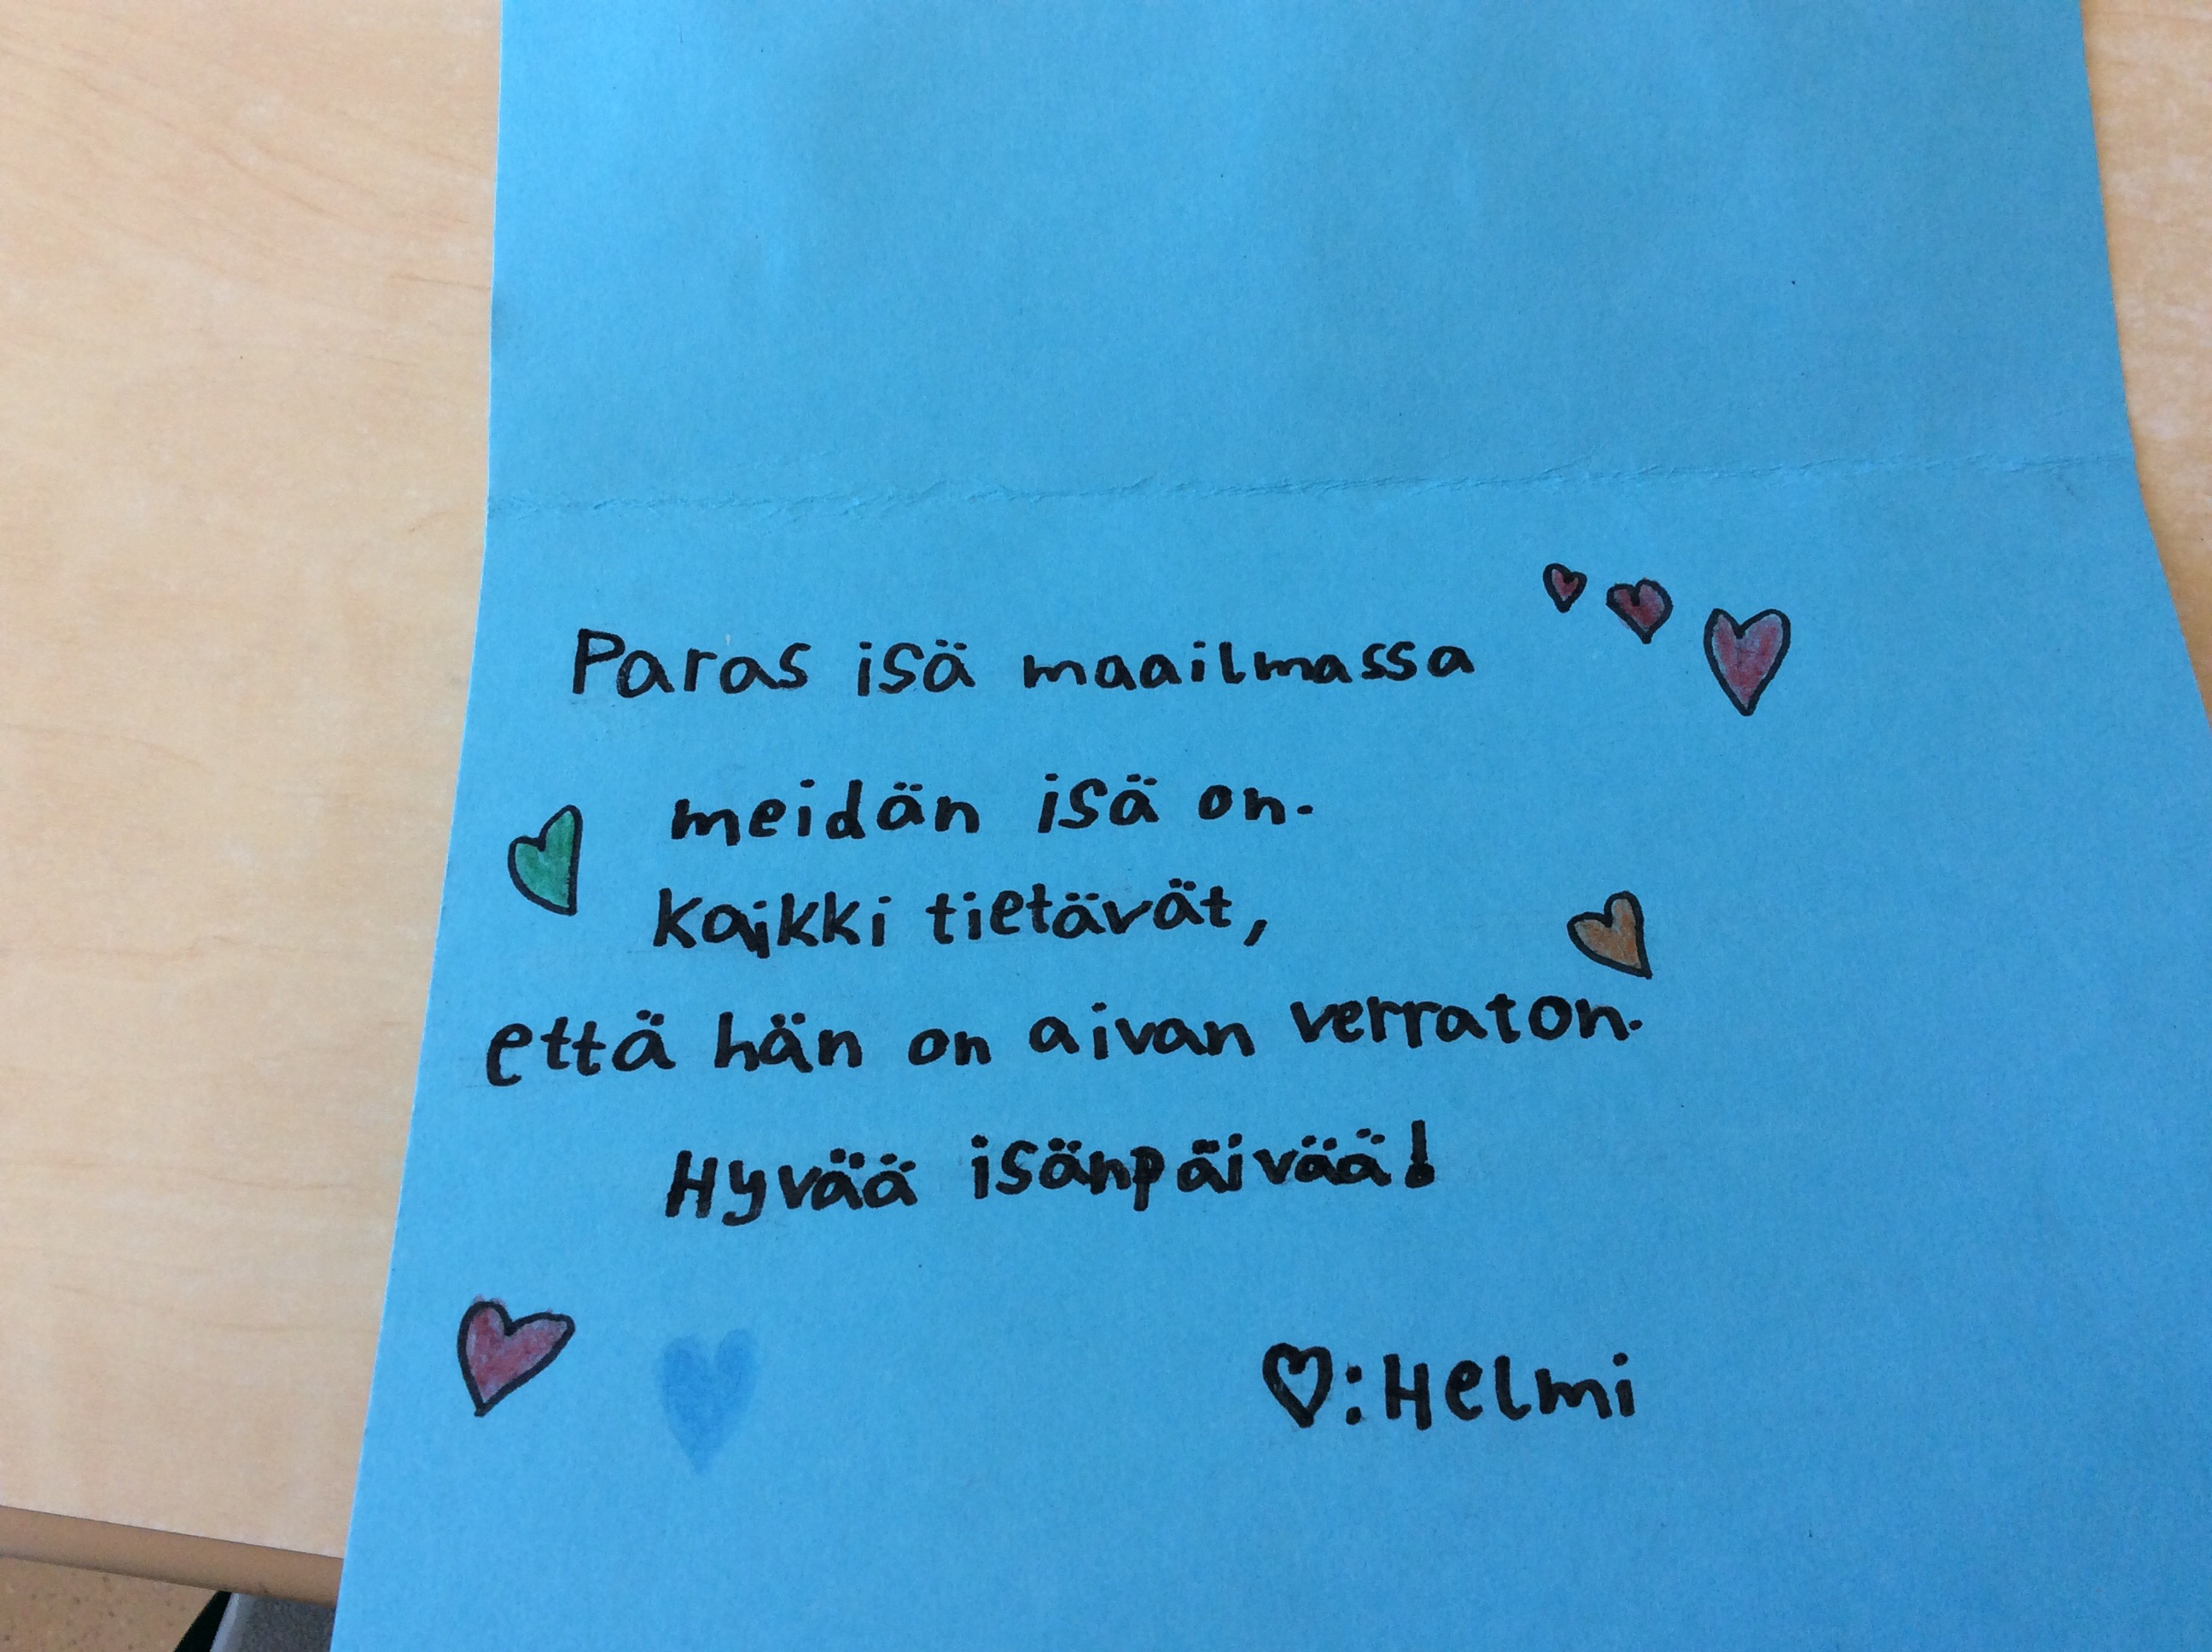 Paras isä maailmassa
meidän isä on.
Kaikki tietävät,
että hän on aivan verraton.
Hyvää isänpäivää!
♡:Helmi